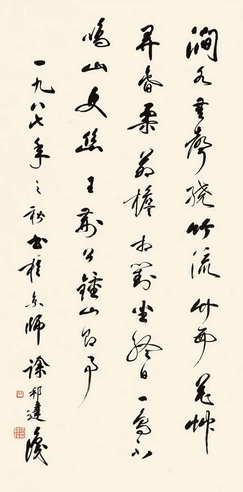 澗水無聲繞竹流竹西花艸
弄春柔茅檐相對坐終日一鳥不
鳴山更幽王荆公鍾山即事
一九八七年之秋書於京師徐邦達